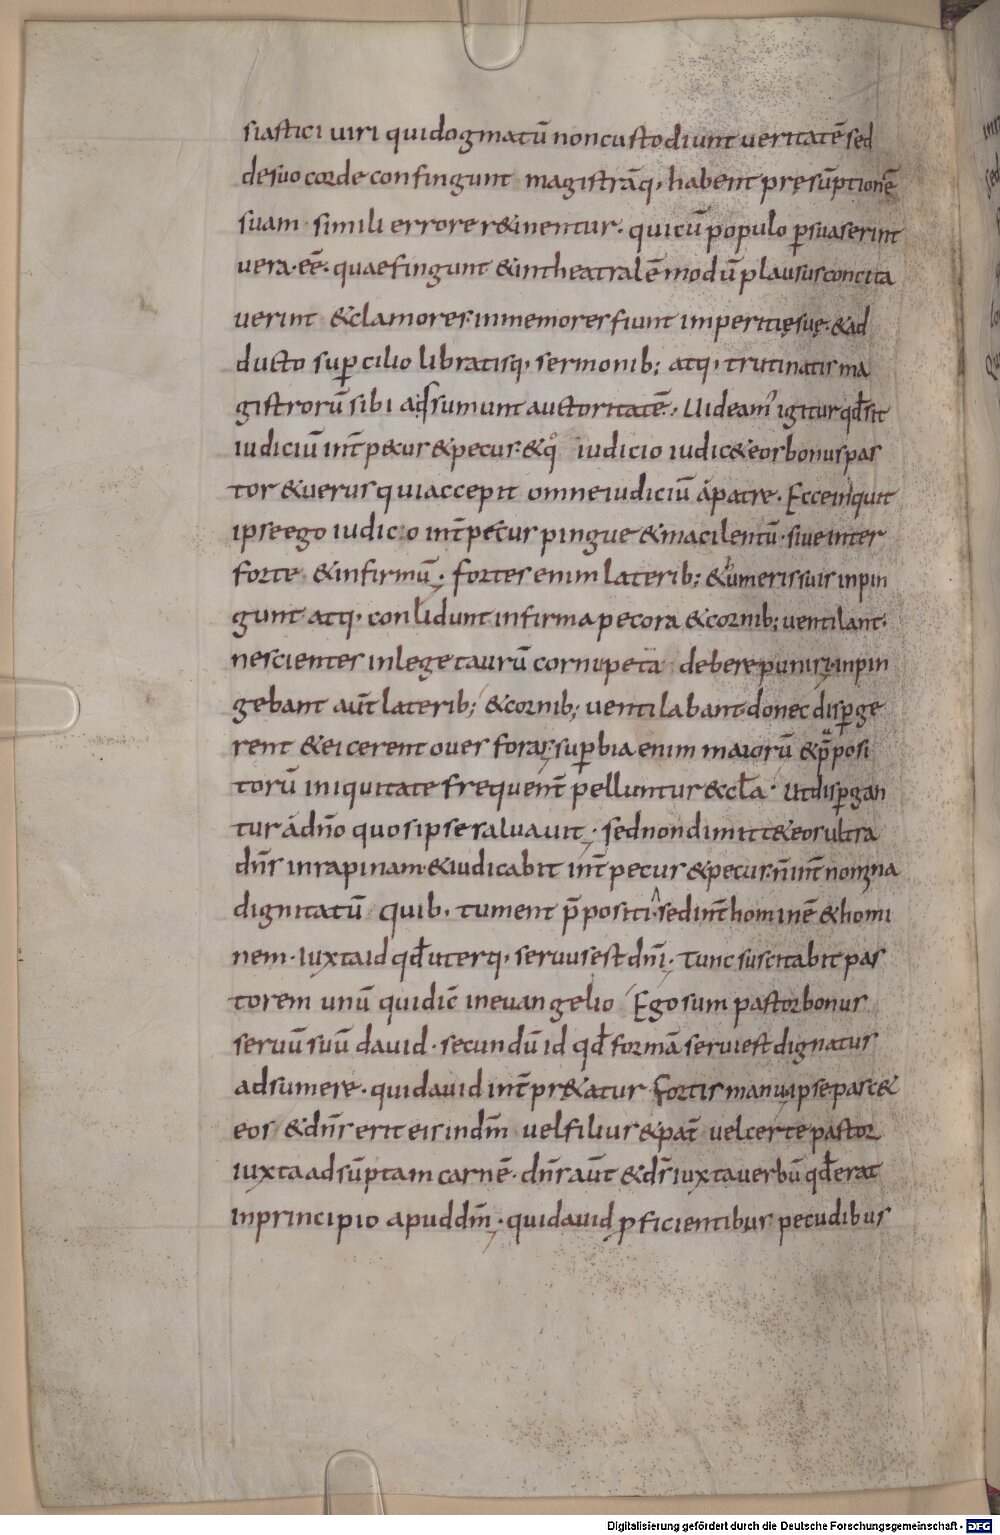 siastici uiri qui dogmatū non custodiunt ueritatē sed
de suo corde confingunt magistrāq, habent pręsūptionē
suam · simili errore r&inentur · qui cū populo p̱suaserint
uera · eē · quae fingunt & in theatralē modū plausus concita
uerint & clamores · inmemores fiunt imperitię suę · & ad
ducto sup̱cilio libratisq, sermonib; atq, trutinatis ma
gistrorū sibi adsumunt auctoritatē · Uideam' igitur qđ sit
iudiciū int̄ pecus & pecus · & qͦ iudicio iudic& eos bonus pas
tor & uerus qui accepit omne iudiciū á patre · Ecce inquit
ipse ego iudico int̄ pecus pingue & macilentū · siue inter
forte & infirmū · fortes enim laterib; & umeris suis inpin
gunt atq, conlidunt infirma pecora & cornib; uentilant ·
nescientes in lege taurū cornupetā debere puniri · inpin
gebant aūt laterib; & cornib; uentilabant · donec disp̱ge
rent & eicerent oues foras · sup̱bia enim maiorū & p̄posi
torū iniquitate frequent̄ pelluntur & ccƚa · Ut disp̱gan
tur á dn̄o quos ipse saluauit · sed non dimitt& eos ultra
dn̄s in rapinam · & iudicabit int̄ pecus & pecus · n̄ int̄ nomina
dignitatū quib, tument p̄positi · sed int̄ hominē & homi
nem · iuxta id qđ uterq, seruus est dn̄i · Tunc suscitabit pas
torem unū qui dic̄ in euangelio Ego sum pastor bonus
seruū suū dauid · secundū id qđ formā serui est dignatus
adsumere · qui dauid int̄pr&atur fortis manu · ipse pasc&
eos & dn̄s erit eis in dm̄ uel filius & pat̄ uel certe pastor
iuxta adsūptam carnē · dn̄s aūt & ds̄ iuxta uerbū qđ erat
in principio apud dm̄ · qui dauid p̱ficientibus pecudibus
Digitalisierung gefördert durch die Deutsche Forschungsgemeinschaft - DFG